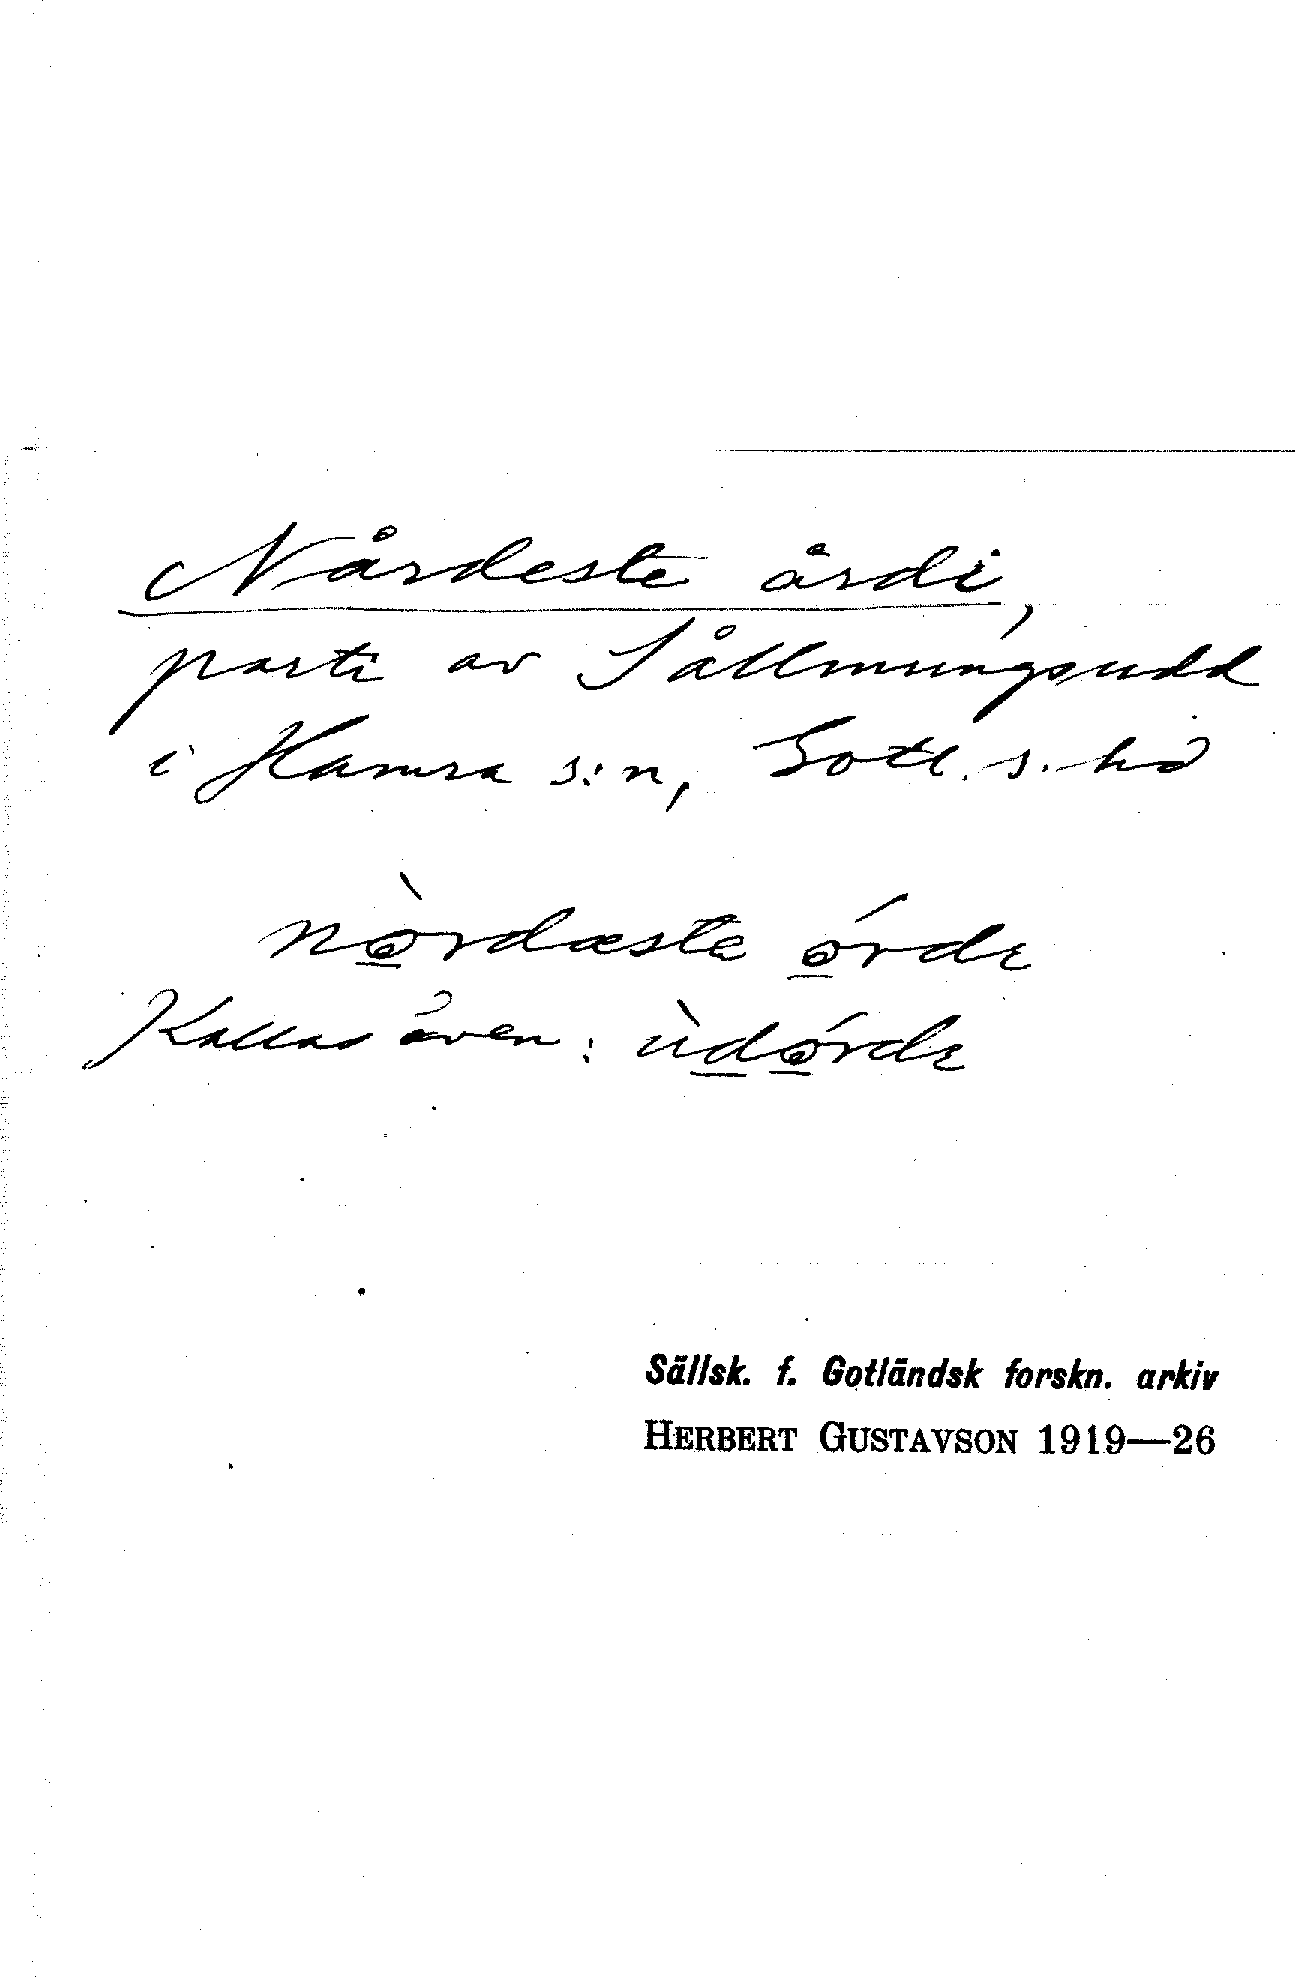 Nårdeste årdi,
parti av Sållmungsudd
i Hamra s:n, Gotl. s. hd
nòrdæste órdɩ
Kallas även: ùdórdɩ
Sällsk. f. Gotländsk forskn. arkiv
HERBERT GUSTAVSON 1919—26